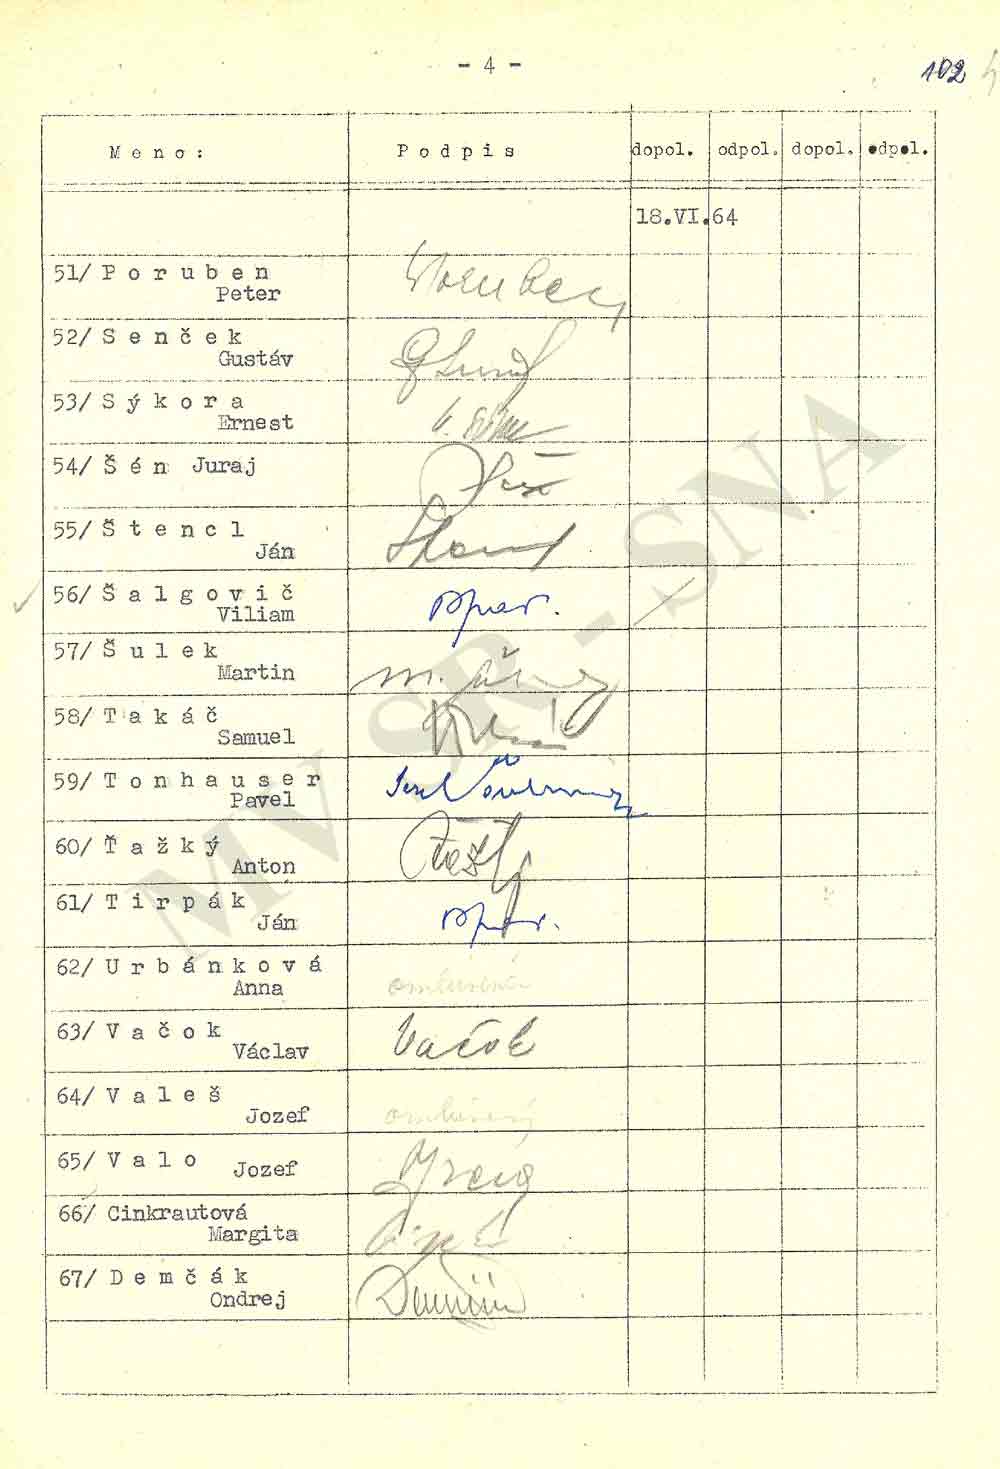 - 4 -
102
Meno: Podpis dopol. odpol. dopol. odpol.
18.VI.64
51/ Poruben
Peter
52/ Senček
Gustáv
53/ Sýkora
Ernest
54/ Šén Juraj
55/ Štencl
Ján
56/ Šalgovič
Viliam
57/ Šulek
Martin
58/ Takáč
Samuel
59/ Tonhauser
Pavel
60/ Ťažký
Anton
61/ Tirpák
Ján
62/ Urbánková
Anna
63/ Vačok
Václav
Vačok
64/ Valeš
Jozef
65/ Valo Jozef
66/ Cinkrautová
Margita
67/ Demčák
Ondrej
MV SR - SNA